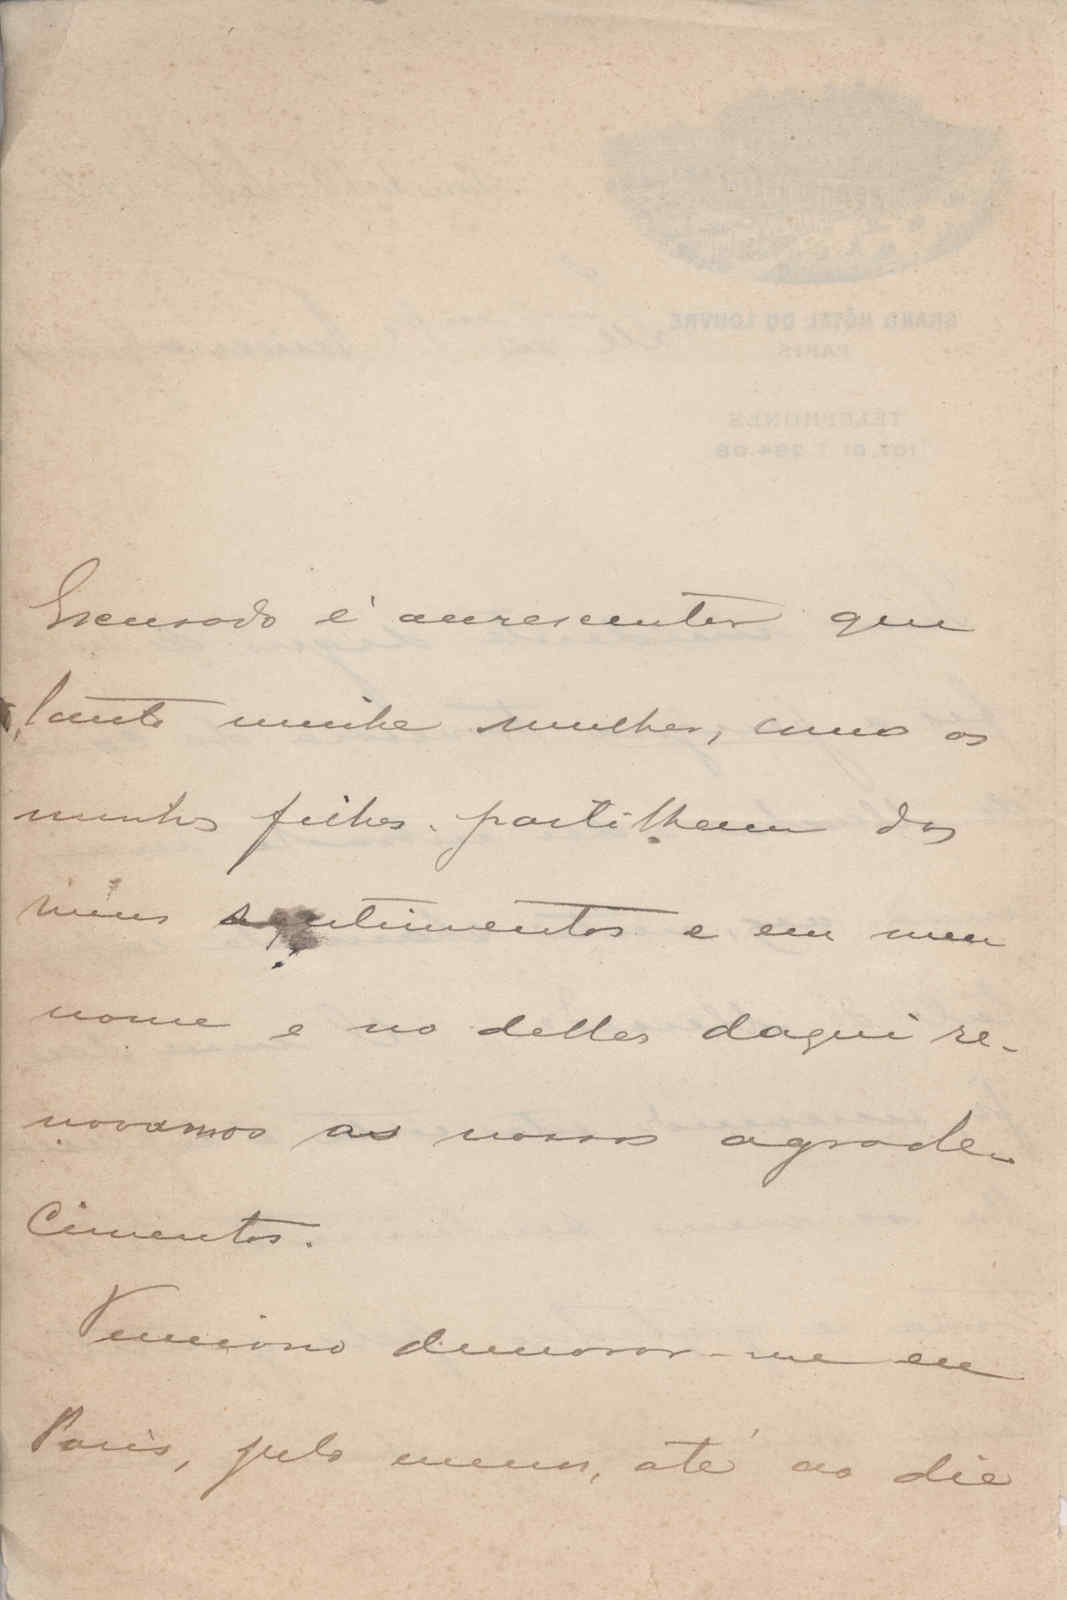 Escusado é accrescentar que
tanto minha mulher, como os
minhos filhos partilham dos
meus sentimentos e em meu
nome e no delles daqui re-
novamos os nossos agrade-
cimentos.
Tenciono demorar-me em
Paris, pelo menos, até ao die
GRAND HÔTEL DU LOUVRE
PARIS
TÉLÉPHONES